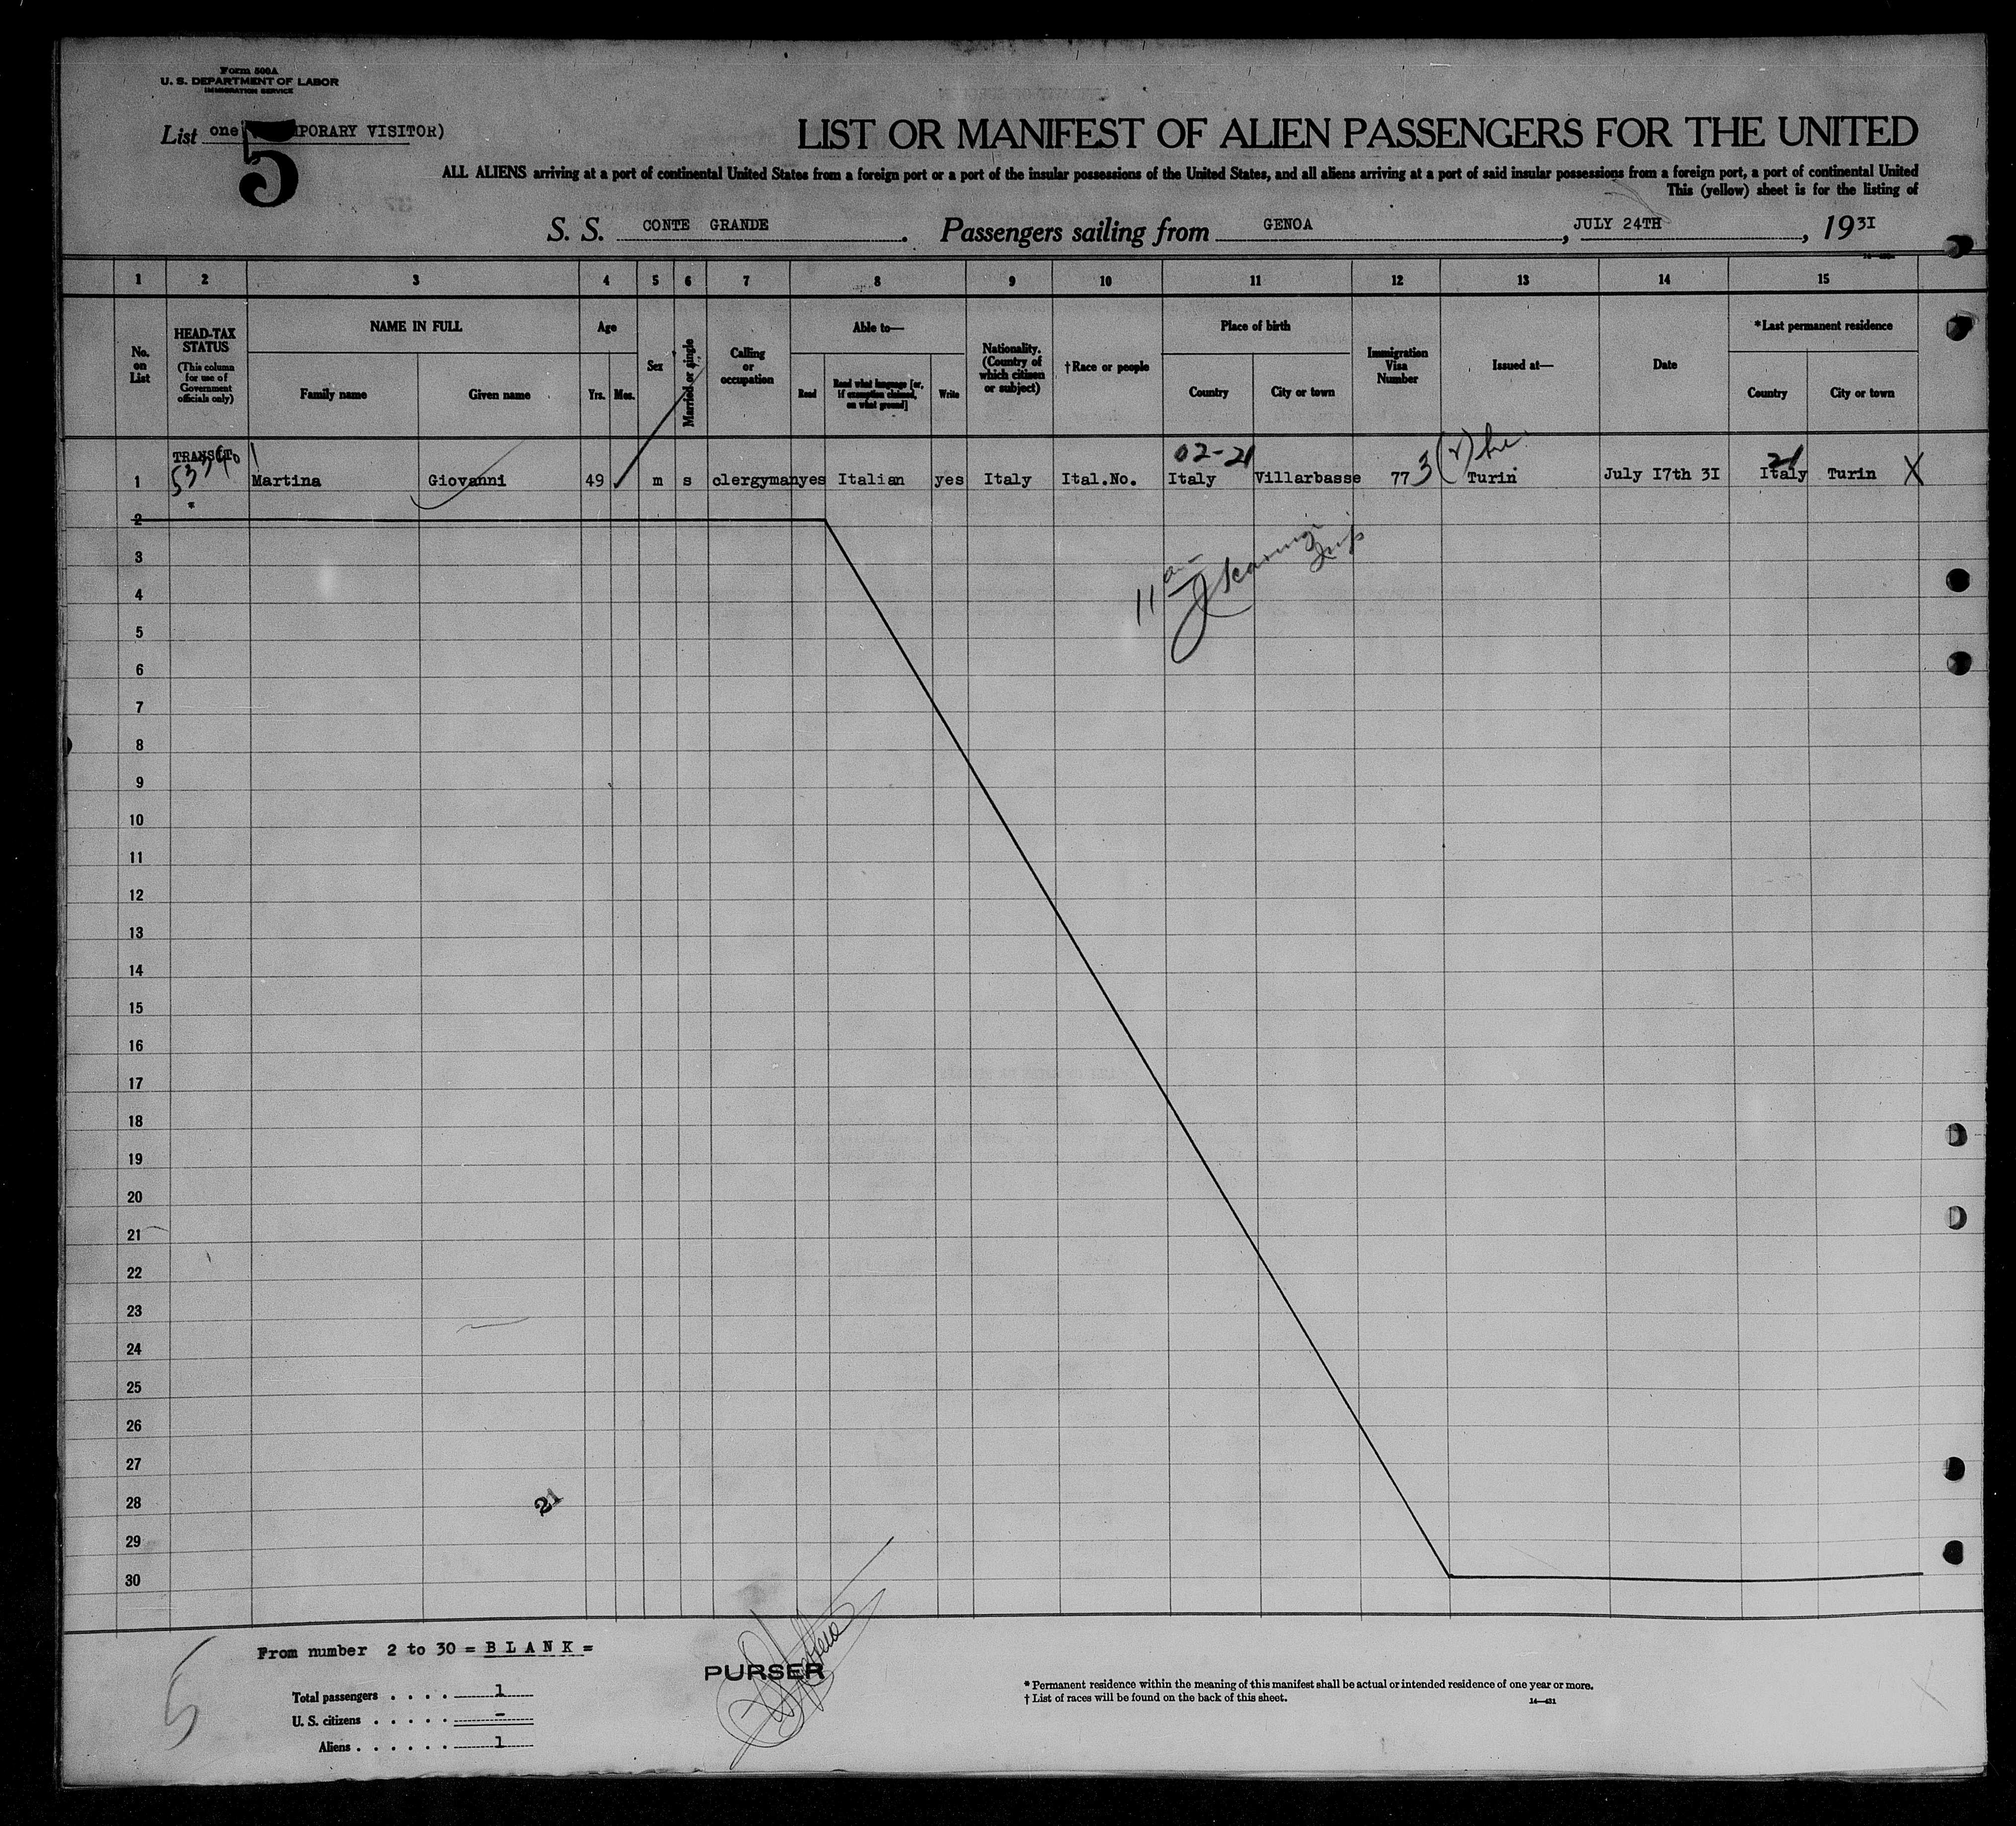 Form 500A
U. S. DEPARTMENT OF LABOR
IMMIGRATION SERVICE
List one PORARY VISITOR)
5
LIST OR MANIFEST OF ALIEN PASSENGERS FOR THE UNITED
ALL ALIENS arriving at a port of continental United States from a foreign port or a port of the insular possessions of the United States, and all aliens arriving at a port of said insular possessions from a foreign port, a port of continental United
This (yellow) sheet is for the listing of
S. S. CONTE GRANDE. Passengers sailing from GENOA, JULY 24TH, 1931
1 2 3 4 5 6 7 8 9 10 11 12 13 14 15
No. on List
HEAD-TAX STATUS
(This column for use of Government officials only)
NAME IN FULL
Family name
Given name
Age
Yrs. Mos.
Sex
Married or single
Calling or occupation
Able to—
Read
Read what language [or, if exemption claimed, on what ground]
Write
Nationality. (Country of which citizen or subject)
†Race or people
Place of birth
Country
City or town
Immigration Visa Number
Issued at—
Date
*Last permanent residence
Country
City or town
TRANSIT 02-21 21
1 Martina Giovanni 49 m s clergyman yes Italian yes Italy Ital.No. Italy Villarbasse 773 Turin July 17th 31 Italy Turin X
2
3
4
5
6
7
8
9
10
11
12
13
14
15
16
17
18
19
20
21
22
23
24
25
26
27
28
29
30
21
From number 2 to 30 = B L A N K =
5
PURSER
Total passengers . . . . 1
U. S. citizens . . . . . -
Aliens . . . . . . 1
* Permanent residence within the meaning of this manifest shall be actual or intended residence of one year or more.
† List of races will be found on the back of this sheet.
14—431